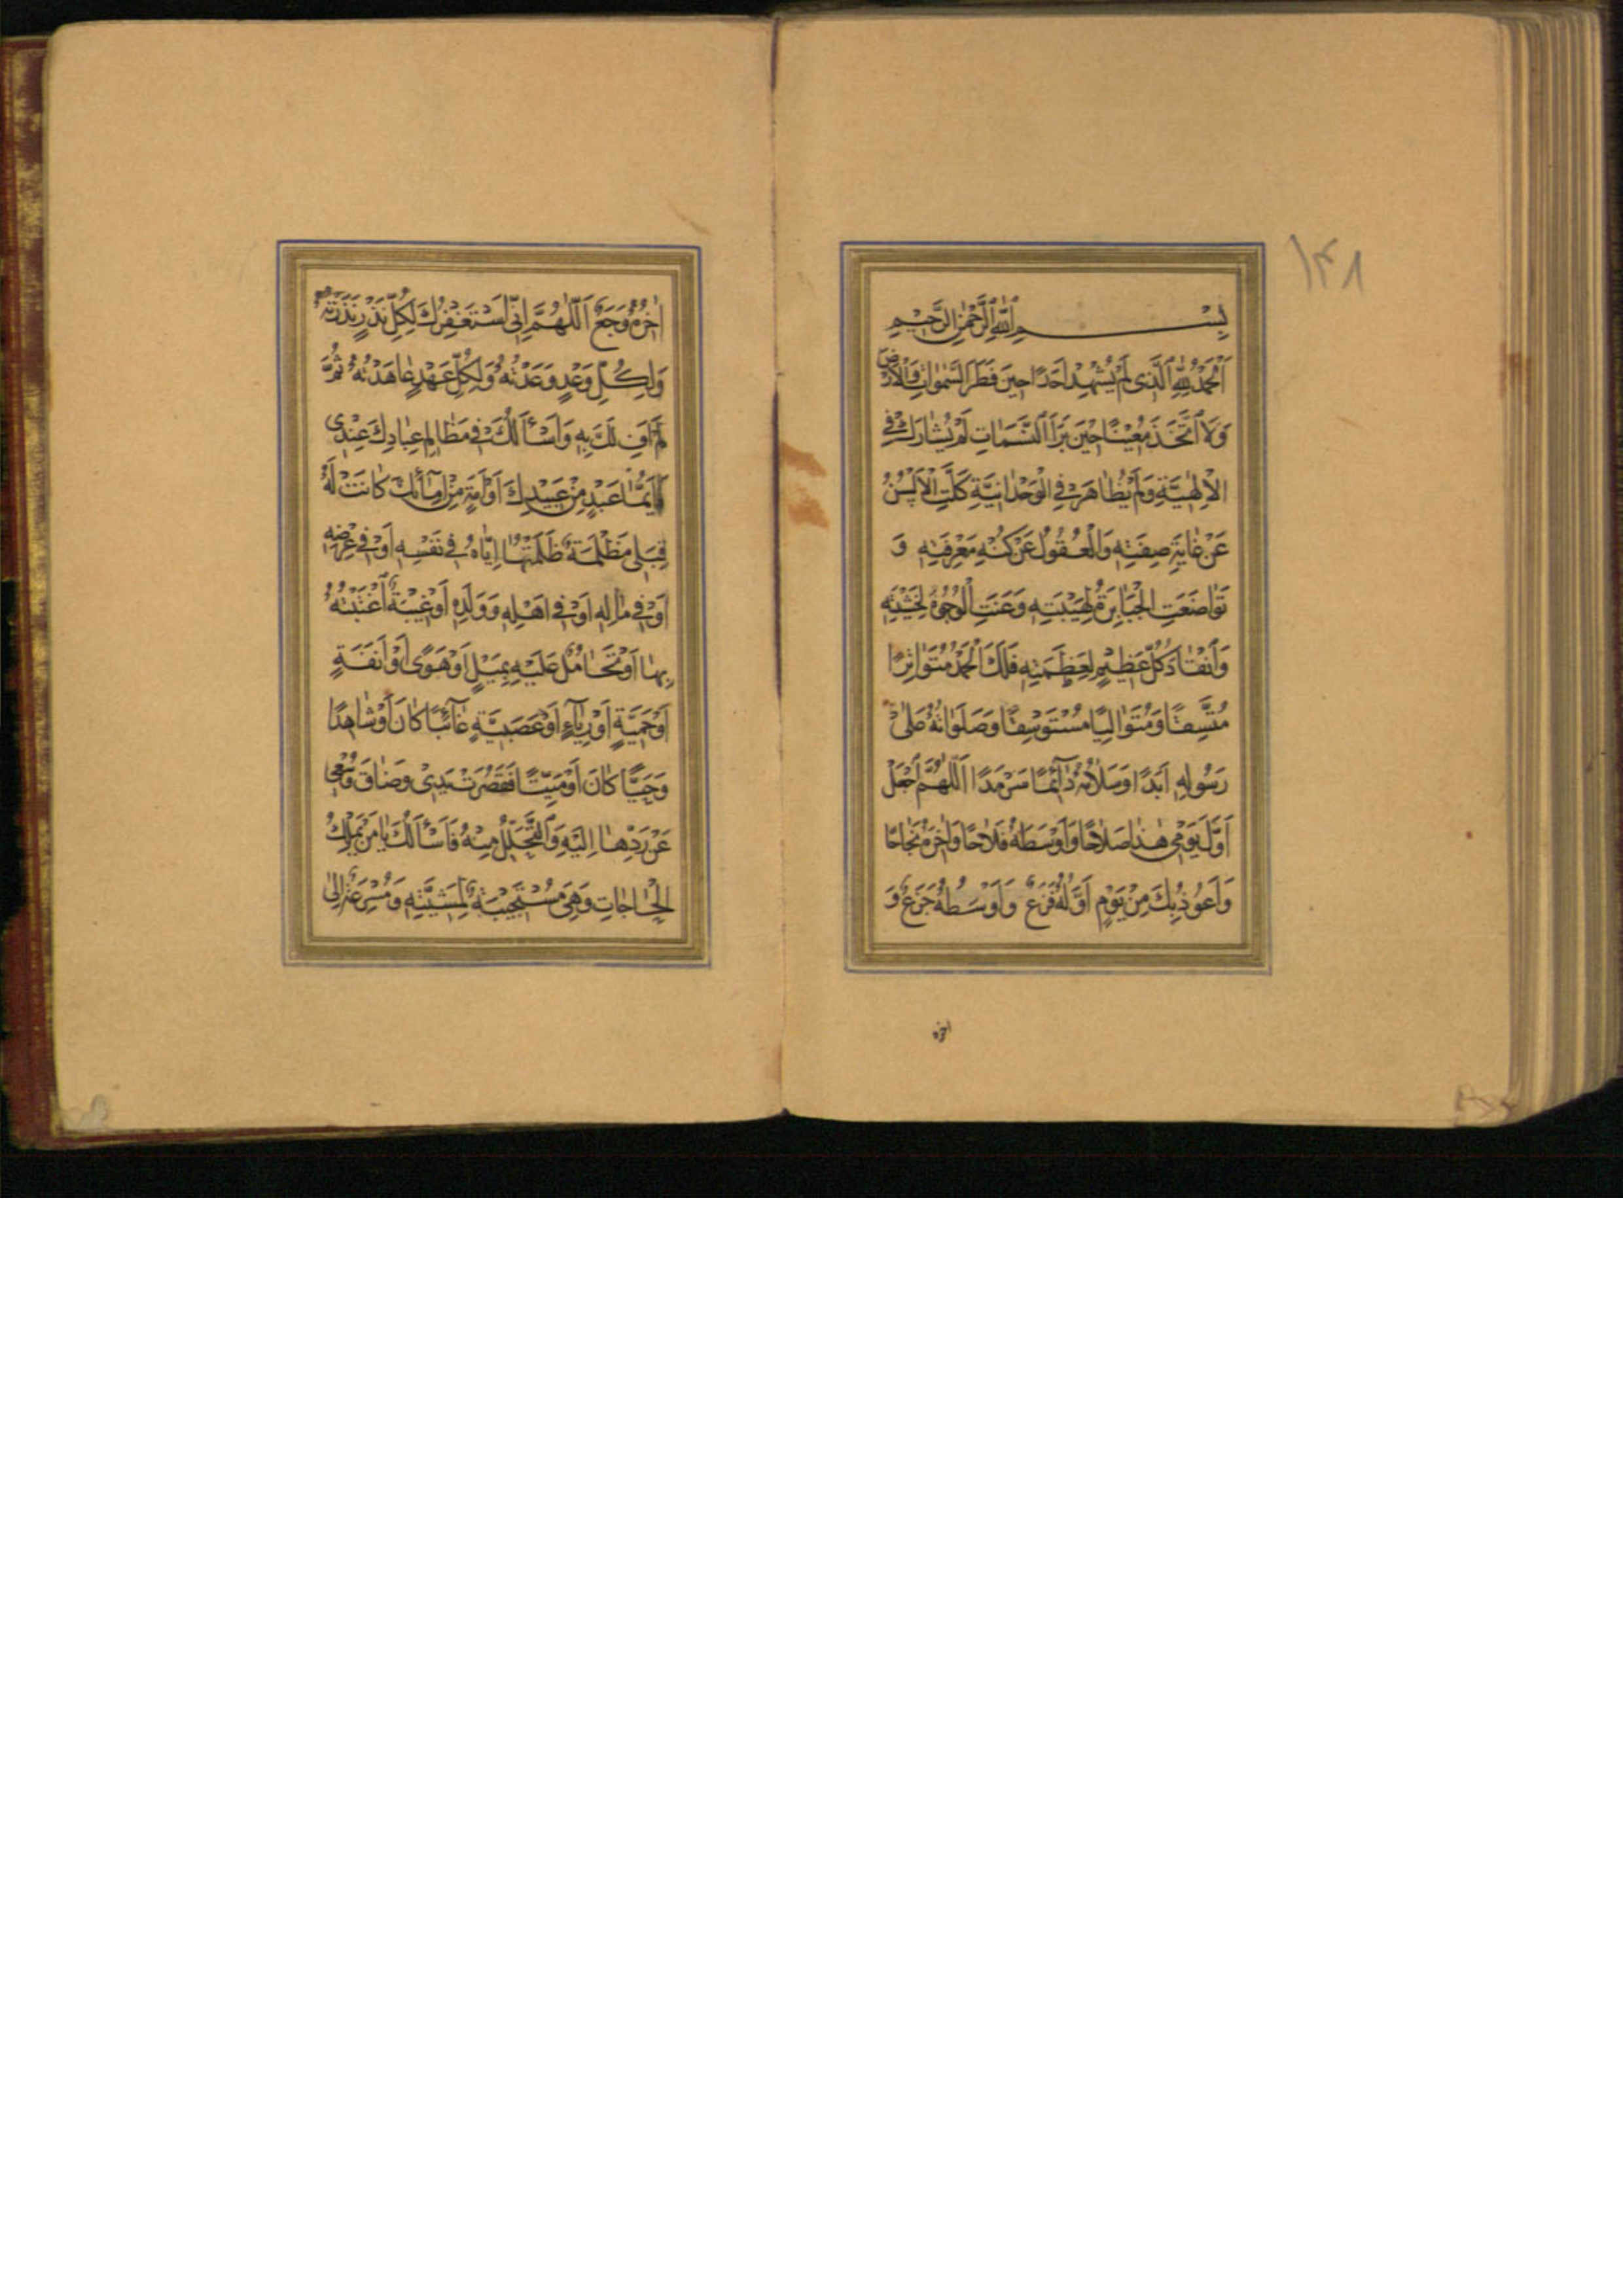 ۱۴۸
بِسْمِ اللهِ الرَّحْمٰنِ الرَّحِيمِ
اَلْحَمْدُ لِلّٰهِ الَّذِى لَمْ يُشْهِدْ اَحَدًا حِينَ فَطَرَ السَّمٰوَاتِ وَالْاَرْضَ
وَلَا اتَّخَذَ مُعِيْنًا حِيْنَ بَرَأَ النَّسَمَاتِ لَمْ يُشَارَكْ فِي
الْاِلٰهِيَّةِ وَلَمْ يُظَاهَرْ فِي الْوَحْدَانِيَّةِ كَلَّتِ الْاَلْسُنُ
عَنْ غَايَةِ صِفَتِهِ وَالْعُقُولُ عَنْ كُنْهِ مَعْرِفَتِهِ وَ
تَوَاضَعَتِ الْجَبَابِرَةُ لِهَيْبَتِهِ وَعَنَتِ الْوُجُوهُ لِخَشْيَتِهِ
وَانْقَادَ كُلُّ عَظِيْمٍ لِعَظَمَتِهِ فَلَكَ الْحَمْدُ مُتَوَاتِرًا
مُتَّسِقًا وَمُتَوَالِيًا مُسْتَوْسِقًا وَصَلَوَاتُهُ عَلٰى
رَسُولِهِ اَبَدًا وَسَلَامُهُ دَآئِمًا سَرْمَدًا اَللّٰهُمَّ اجْعَلْ
اَوَّلَ يَوْمِي هٰذَا صَلَاحًا وَاَوْسَطَهُ فَلَاحًا وَاٰخِرَهُ نَجَاحًا
وَاَعُوذُ بِكَ مِنْ يَوْمٍ اَوَّلُهُ فَزَعٌ وَاَوْسَطُهُ جَزَعٌ وَ
اخره
اٰخِرُهُ وَجَعٌ اَللّٰهُمَّ اِنِّي اَسْتَغْفِرُكَ لِكُلِّ نَذْرٍ نَذَرْتُهُ
وَلِكُلِّ وَعْدٍ وَعَدْتُهُ وَلِكُلِّ عَهْدٍ عَاهَدْتُهُ ثُمَّ
لَمْ اَفِ لَكَ بِهِ وَاَسْأَلُكَ فِي مَظَالِمِ عِبَادِكَ عِنْدِى
فَاَيُّمَا عَبْدٍ مِنْ عَبِيْدِكَ اَوْ اَمَةٍ مِنْ اِمَآئِكَ كَانَتْ لَهُ
قِبَلِى مَظْلِمَةٌ ظَلَمْتُهَا اِيَّاهُ فِي نَفْسِهِ اَوْ فِي عِرْضِهِ
اَوْ فِي مَالِهِ اَوْ فِي اَهْلِهِ وَوَلَدِهِ اَوْ غِيْبَةٌ اغْتَبْتُهُ
بِهَا اَوْ تَحَامُلٌ عَلَيْهِ بِمَيْلٍ اَوْ هَوًى اَوْ اَنَفَةٍ
اَوْ حَمِيَّةٍ اَوْ رِيَآءٍ اَوْ عَصَبِيَّةٍ غَآئِبًا كَانَ اَوْ شَاهِدًا
وَحَيًّا كَانَ اَوْ مَيِّتًا فَقَصُرَتْ يَدِىْ وَضَاقَ وُسْعِى
عَنْ رَدِّهَا اِلَيْهِ وَالتَّحَلُّلِ مِنْهُ فَاَسْأَلُكَ يَا مَنْ يَمْلِكُ
الْحَاجَاتِ وَهِيَ مُسْتَجِيْبَةٌ لِمَشِيَّتِهِ وَمُسْرِعَةٌ اِلٰى